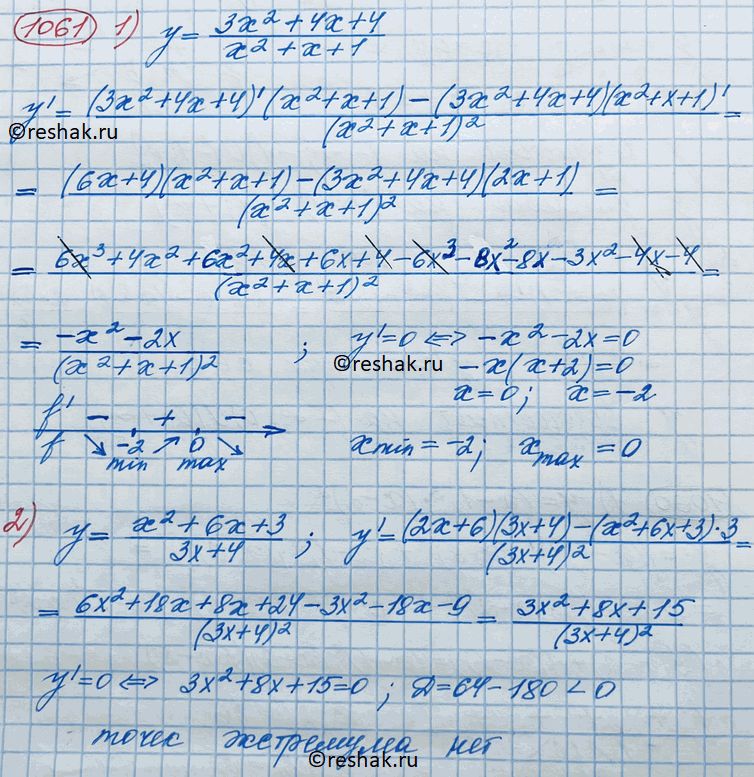 1061 1) y = (3x² + 4x + 4)/(x² + x + 1)
y' = ((3x² + 4x + 4)'(x² + x + 1) − (3x² + 4x + 4)(x² + x + 1)')/(x² + x + 1)² =
©reshak.ru
= ((6x + 4)(x² + x + 1) − (3x² + 4x + 4)(2x + 1))/(x² + x + 1)² =
= (6x³ + 4x² + 6x² + 4x + 6x + 4 − 6x³ − 8x² − 8x − 3x² − 4x − 4)/(x² + x + 1)² =
= (−x² − 2x)/(x² + x + 1)² ; y' = 0 ⇔ −x² − 2x = 0
©reshak.ru
−x(x + 2) = 0
x = 0; x = −2
f' − + −
f ↘ −2 ↗ 0 ↘
min max
xmin = −2; xmax = 0
2) y = (x² + 6x + 3)/(3x + 4) ; y' = ((2x + 6)(3x + 4) − (x² + 6x + 3)·3)/(3x + 4)² =
= (6x² + 18x + 8x + 24 − 3x² − 18x − 9)/(3x + 4)² = (3x² + 8x + 15)/(3x + 4)²
y' = 0 ⇔ 3x² + 8x + 15 = 0 ; Д = 64 − 180 < 0
точек экстремума нет
©reshak.ru